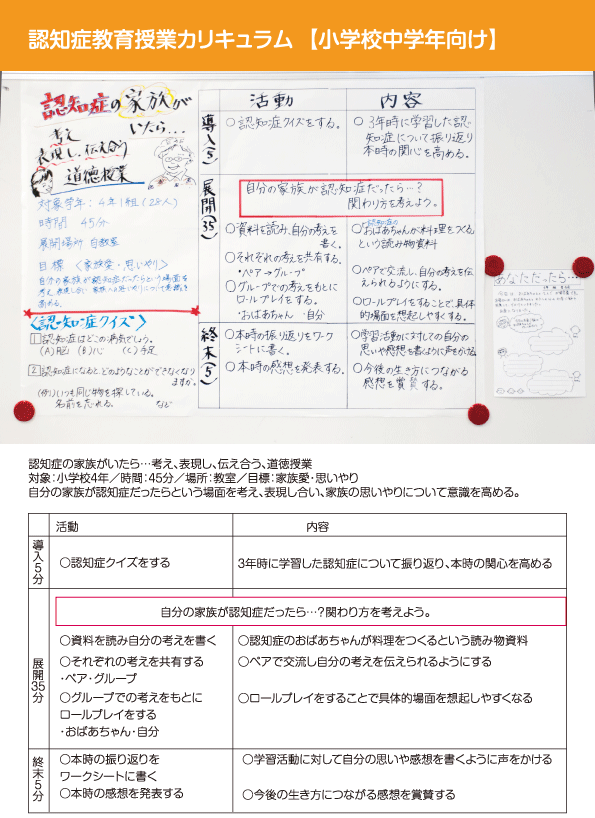 認知症教育授業カリキュラム 【小学校中学年向け】
認知症の家族が
いたら…
考え
表現し、伝え合う
道徳授業
対象学年：4年1組（28人）
時間 45分
展開場所 自教室
目標 〈家族愛・思いやり〉
自分の家族が認知症だったらという場面を
〈認知症クイズ〉
1 認知症はどこの病気でしょう。
(A)脳 (B)心 (C)手足
2 認知症になるとどのようなことができなくなり
ますか。
(例)いつも同じ物を探している。
名前を忘れる。 など
活動
内容
導入(5)
○認知症クイズをする。
○3年時に学習した認
知症について振り返り
本時の関心を高める。
展開(35)
自分の家族が認知症だったら…？
関わり方を考えよう。
○資料を読み、自分の考えを
書く。
○それぞれの考えを共有する。
・ペア→グループ
○グループでの考えをもとに
ロールプレイをする。
・おばあちゃん ・自分
認知症の
○おばあちゃんが料理をつくる
という読み物資料
○ペアで交流し、自分の考えを伝
えられるようにする。
○ロールプレイをすることで、具体
的場面を想起しやすくする。
終末(5)
○本時の振り返りをワーク
シートに書く。
○本時の感想を発表する。
○学習活動に対しての自分の
思いや感想を書くように声をかける
○今後の生き方につながる
感想を賞賛する。
あなただったら…
認知症の家族がいたら…考え、表現し、伝え合う、道徳授業
対象：小学校4年／時間：45分／場所：教室／目標：家族愛・思いやり
自分の家族が認知症だったらという場面を考え、表現し合い、家族の思いやりについて意識を高める。
活動 内容
導入5分
○認知症クイズをする
3年時に学習した認知症について振り返り、本時の関心を高める
展開35分
自分の家族が認知症だったら…？関わり方を考えよう。
○資料を読み自分の考えを書く
○認知症のおばあちゃんが料理をつくるという読み物資料
○それぞれの考えを共有する
・ペア・グループ
○ペアで交流し自分の考えを伝えられるようにする
○グループでの考えをもとに
ロールプレイをする
・おばあちゃん・自分
○ロールプレイをすることで具体的場面を想起しやすくなる
終末5分
○本時の振り返りを
ワークシートに書く
○学習活動に対して自分の思いや感想を書くように声をかける
○本時の感想を発表する
○今後の生き方につながる感想を賞賛する